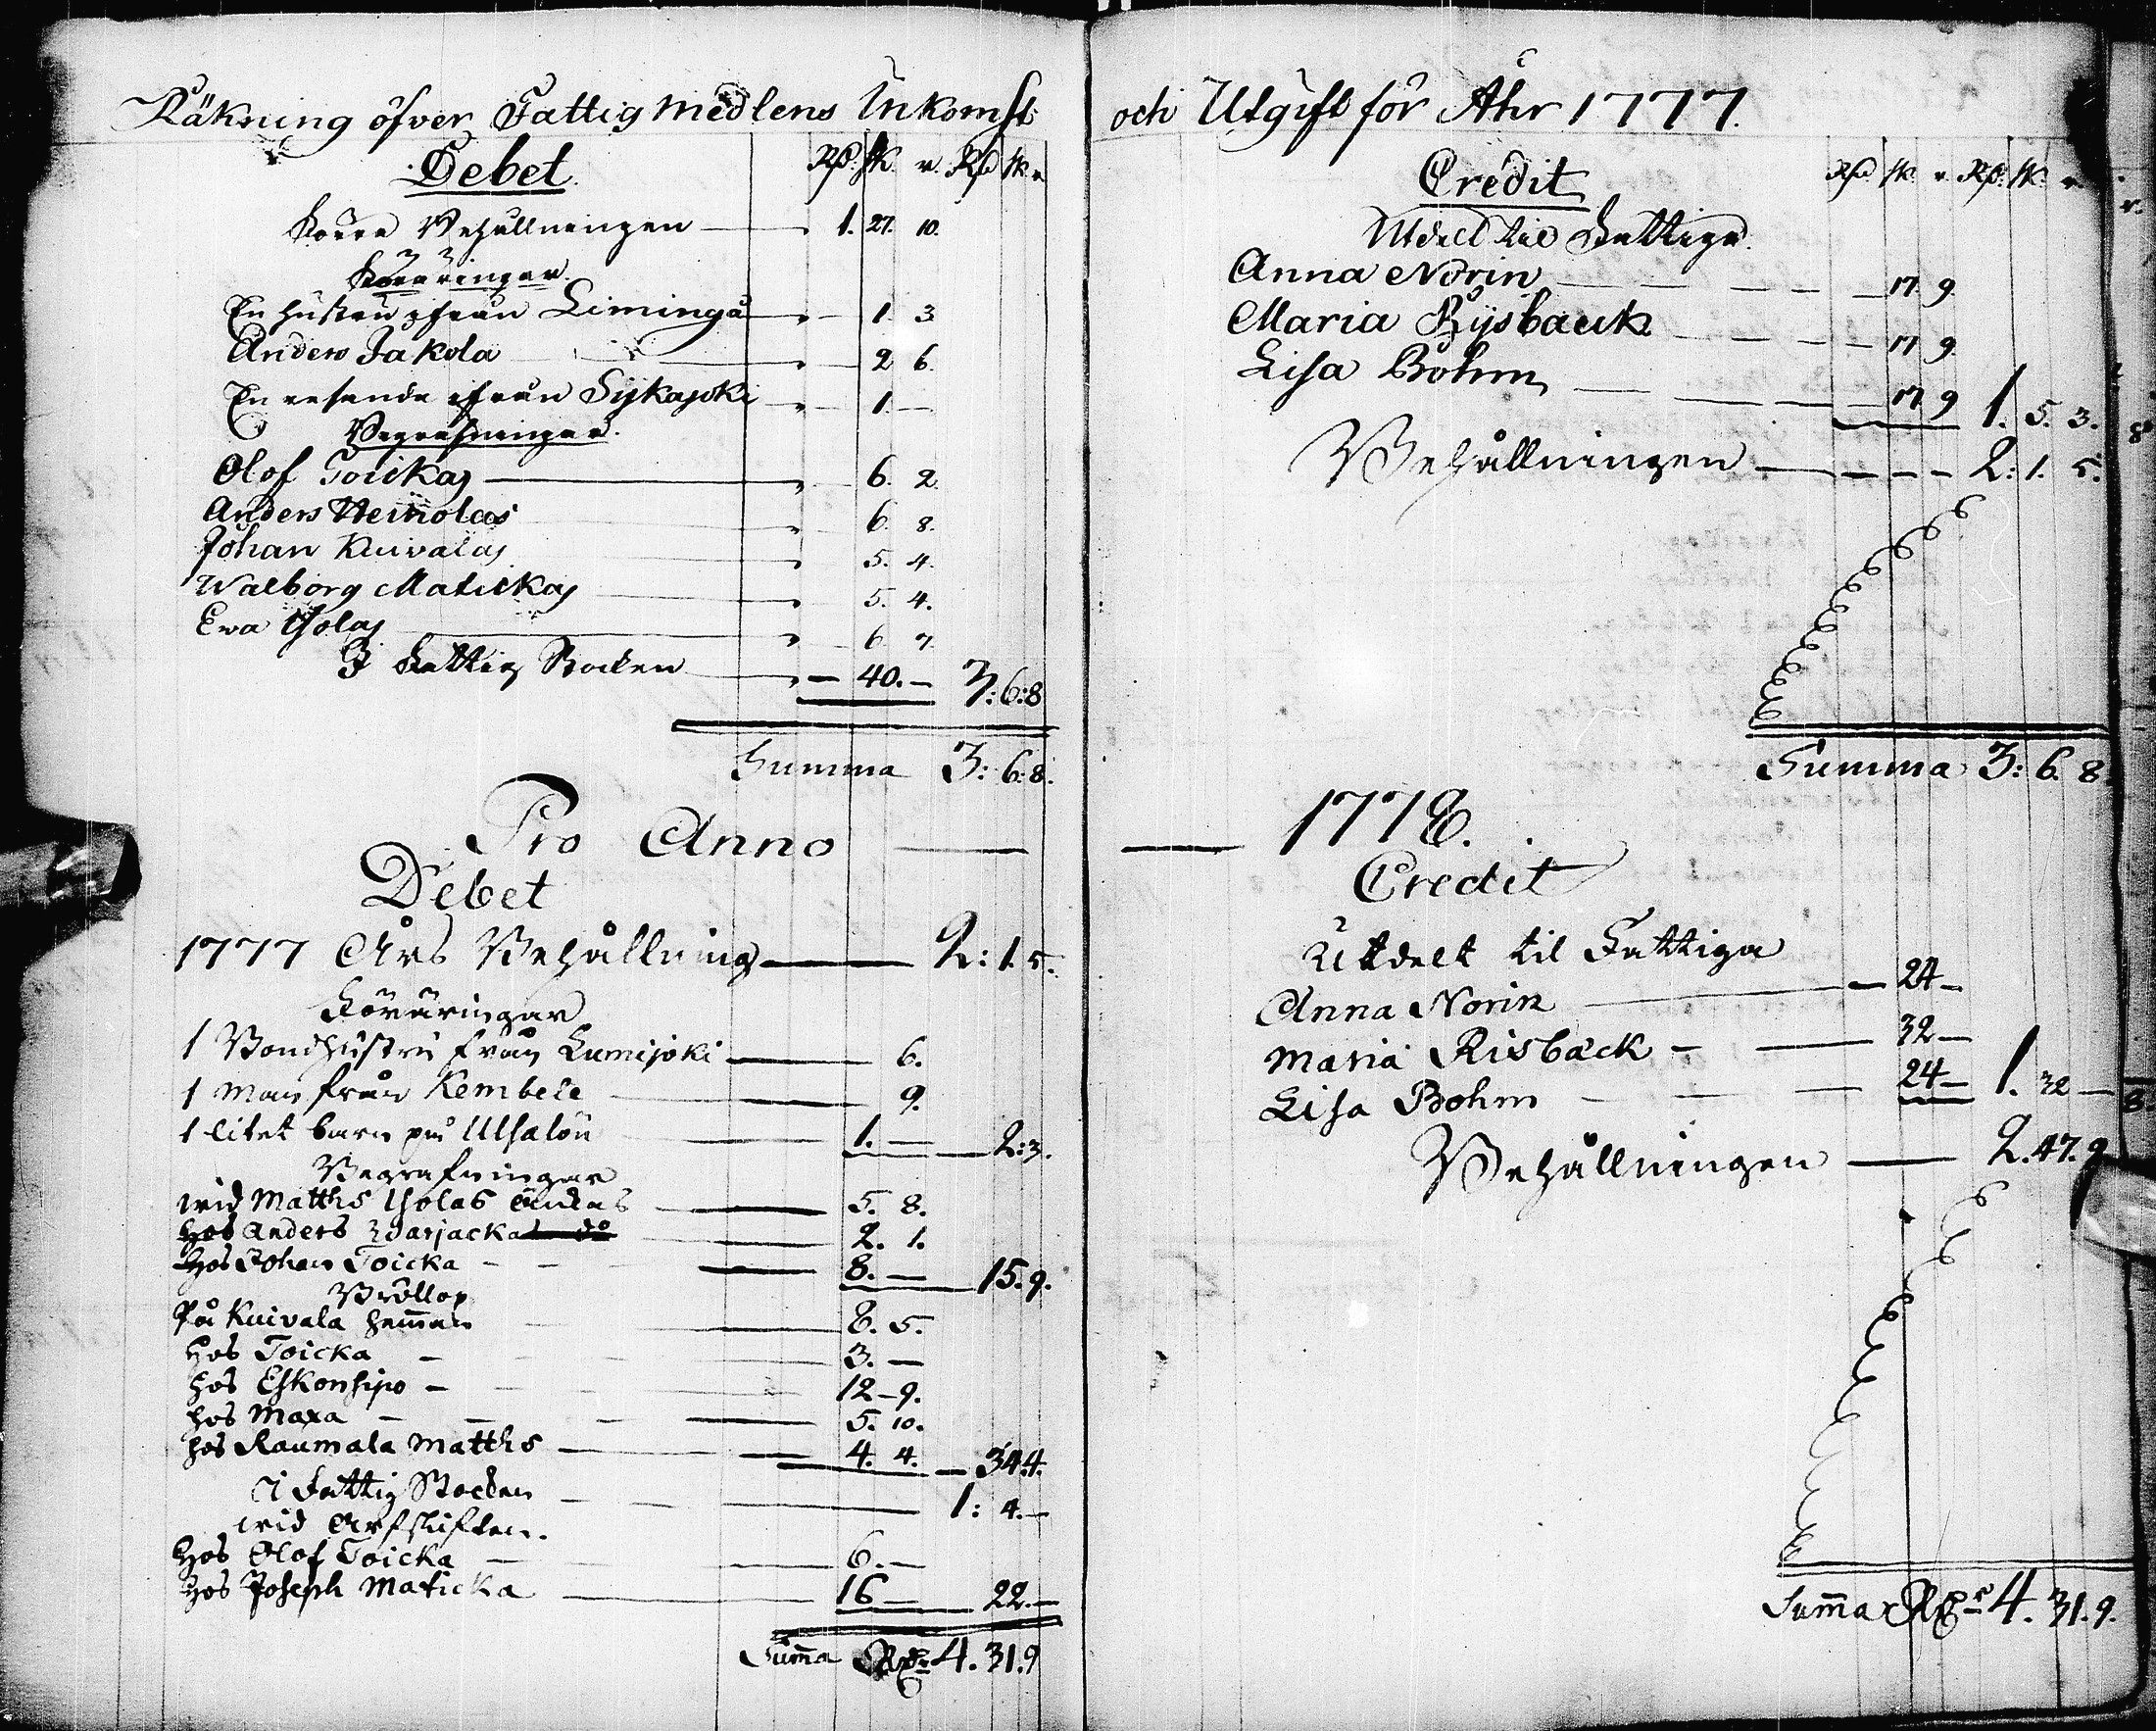 Räkning öfver Fattigmedlens Inkomst
Debet. Rd. sk. r. Rd sk. r
Förra Behållningen 1. 27. 10.
Föräringar.
En hustru ifrån Limingå 1. 3
Anders Jakola 2 6.
En resande ifrån Sijkajoki 1. —
Begrafningar.
Olof Toickas 6. 2.
Anders Heinolas 6. 8.
Johan Kuivalas 5. 4.
Walborg Matickas 5. 4.
Eva Isolas 6 7.
I Fattig Stocken — 40. — 3:6:8
Summa 3:6:8.
Pro Anno
Debet
1777 Års Behållning 2:1.5.
Föräringar
1 Bondhustru från Lumijoki 6.
1 Man från Kembele 9.
1 litet barn på Ulsalön 1. — 2:3.
Begrafningar
wid Matths Isolas Enkas 5. 8.
hos Anders Warjacka 2. 1.
hos Johan Toicka 8. — 15. 9.
Bröllop
På Kuivala hemman 8. 5.
hos Toicka 3. —
hos Eskonsipo 12 — 9.
hos Maxa 5. 10.
hos Raumala Matths 4. 4. — 34.4.
I Fattig Stocken 1: 4. —
wid Arfskiften.
hos Olof Toicka 6. —
hos Joseph Maticka 16 — 22. —
Sum̄a Rdr 4. 31. 9
och Utgift för Åhr 1777.
Credit Rd sk. r. Rd. sk. r.
Utdelt til Fattiga.
Anna Norin 17. 9.
Maria Rijsbäck 17 9.
Lisa Bohm 17 9 1. 5. 3.
Behållningen 2: 1. 5.
Summa 3: 6. 8.
1778.
Credit
Utdelt til Fattiga
Anna Norin 24 —
Maria Risbäck 32 —
Lisa Bohm 24 — 1. 32 —
Behållningen 2. 47. 9
Sum̄a Rdr 4. 31. 9.